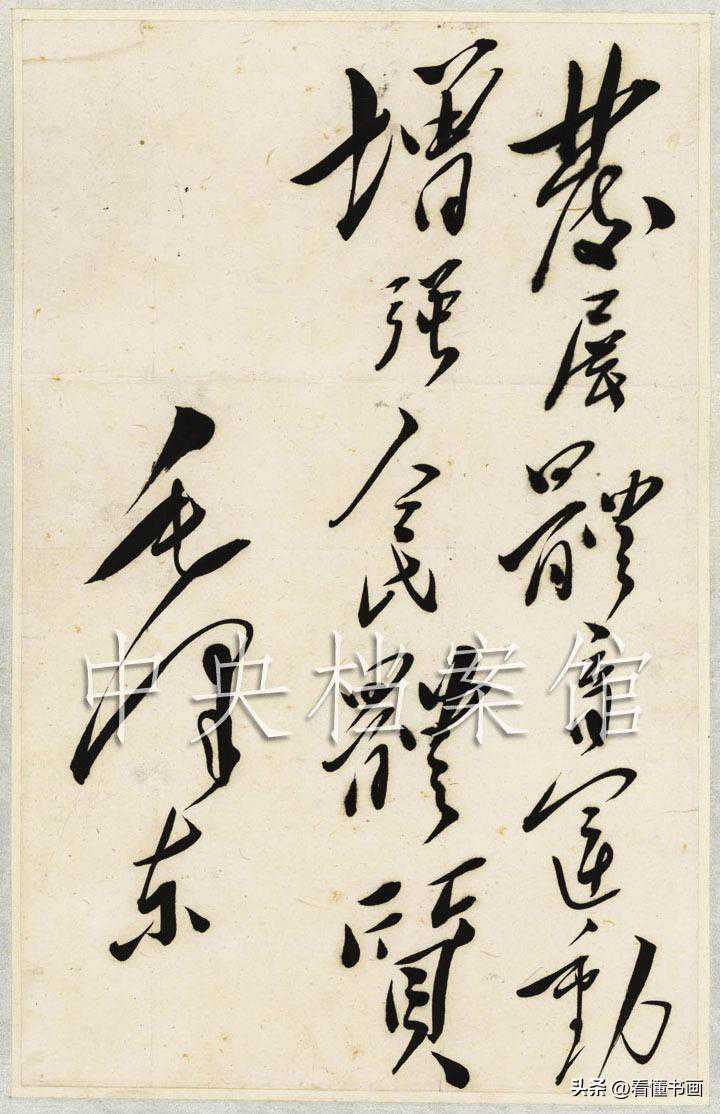 發展體育運動
增强人民體質
毛澤东
中央档案馆
头条 @看懂书画